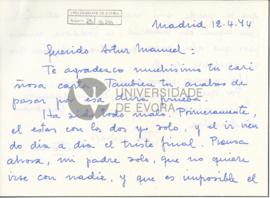 UNIVERSIDADE DE EVORA
Madrid 12.4.44
Querido Artur Manuel:
Te agradezco muchísimo tu cari
ñosa carta. También tu acabas de
pasar por esa dura prueba.
Ha sido todo malo. Primeramente,
el estar con los dos yo solo, y el ir vien
do día a día el triste final. Piensa
ahora, mi padre solo, que no quiere
irse con nadie, y que es imposible el
UNIVERSIDADE
DE ÉVORA